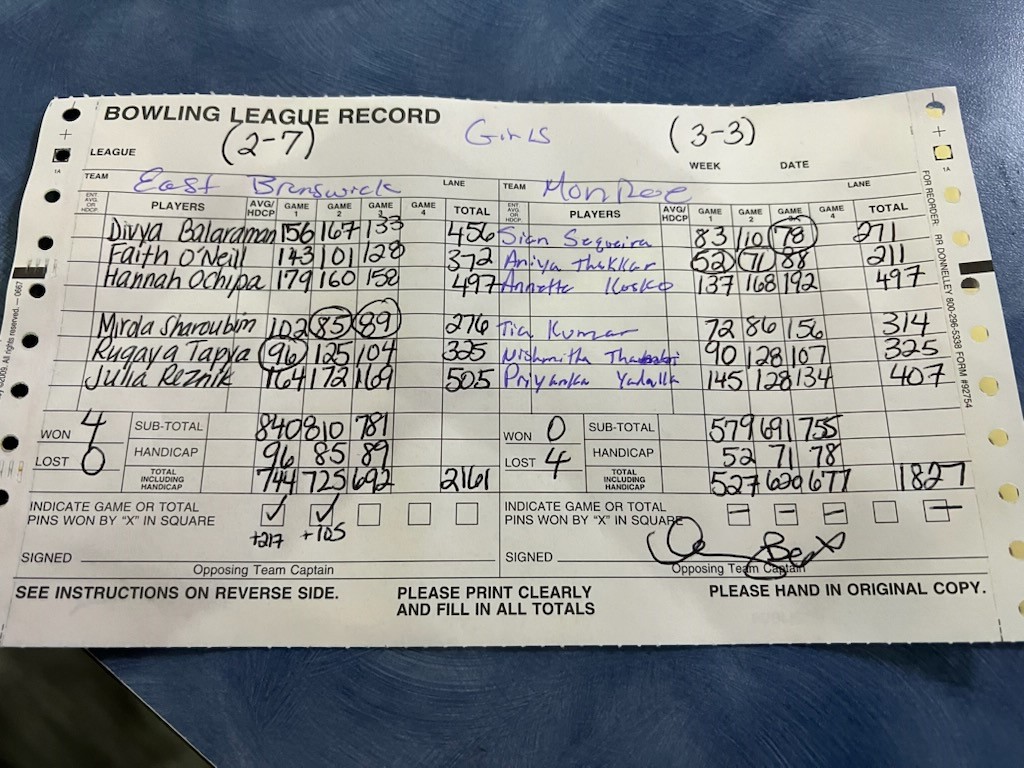 BOWLING LEAGUE RECORD
Girls
(2-7) (3-3)
LEAGUE WEEK DATE
TEAM East Brunswick LANE TEAM Monroe LANE
ENT. AVG. OR HDCP. PLAYERS AVG/HDCP GAME 1 GAME 2 GAME 3 GAME 4 TOTAL ENT. AVG. OR HDCP. PLAYERS AVG/HDCP GAME 1 GAME 2 GAME 3 GAME 4 TOTAL
Divya Balaraman 156 167 133 456 Sian Sequeira 83 110 78 271
Faith O'Neill 143 101 128 372 Aniya Thakkar 52 71 88 211
Hannah Ochipa 179 160 158 497 Annette Kosko 137 168 192 497
Mirola Sharoubim 102 85 89 276 Tia Kumar 72 86 156 314
Rugaya Tapya 96 125 104 325 Nishmitha 90 128 107 325
Julia Reznik 164 172 169 505 Priyanka Yadalla 145 128 134 407
WON 4 SUB-TOTAL 840 810 781 WON 0 SUB-TOTAL 579 691 755
LOST 0 HANDICAP 96 85 89 LOST 4 HANDICAP 52 71 78
TOTAL INCLUDING HANDICAP 744 725 692 2161 TOTAL INCLUDING HANDICAP 527 620 677 1827
INDICATE GAME OR TOTAL PINS WON BY "X" IN SQUARE INDICATE GAME OR TOTAL PINS WON BY "X" IN SQUARE
+217 +105
SIGNED SIGNED
Opposing Team Captain Opposing Team Captain
SEE INSTRUCTIONS ON REVERSE SIDE. PLEASE PRINT CLEARLY AND FILL IN ALL TOTALS PLEASE HAND IN ORIGINAL COPY.
FOR REORDER: RR DONNELLEY 800-296-5338 FORM #92754
©2009. All rights reserved. — 0667
1A
1A